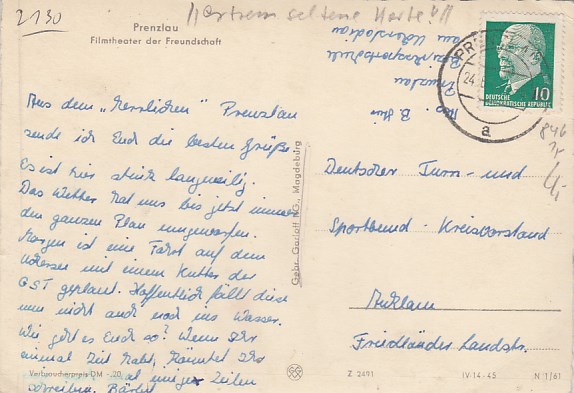 2130
Extrem seltene Karte!!
Prenzlau
Filmtheater der Freundschaft
Abs. B.
Prenzlau
Bezirkssportschule
am Uckersee
PRE
24.
a
10
DEUTSCHE
DEMOKRATISCHE REPUBLIK
Aus dem „herrlichen" Prenzlau
sende ich Euch die besten Grüße
Es ist hier stink langweilig.
Das Wetter hat uns bis jetzt immer
den ganzen Plan umgeworfen.
Morgen ist eine Fahrt auf dem
Uckersee mit einem Kutter der
GST geplant. Hoffentlich fällt diese
uns nicht auch noch ins Wasser.
Wie geht es Euch so? Wenn Ihr
einmal Zeit habt, könntet Ihr
mal einige Zeilen
schreiben. Bärbel
Gebr. Garloff KG., Magdeburg
Deutscher Turn- und
Sportbund - Kreisvorstand
Anklam
Friedländer Landstr.
Verbraucherpreis DM -,20
Z 2491
IV-14-45
N 1/61